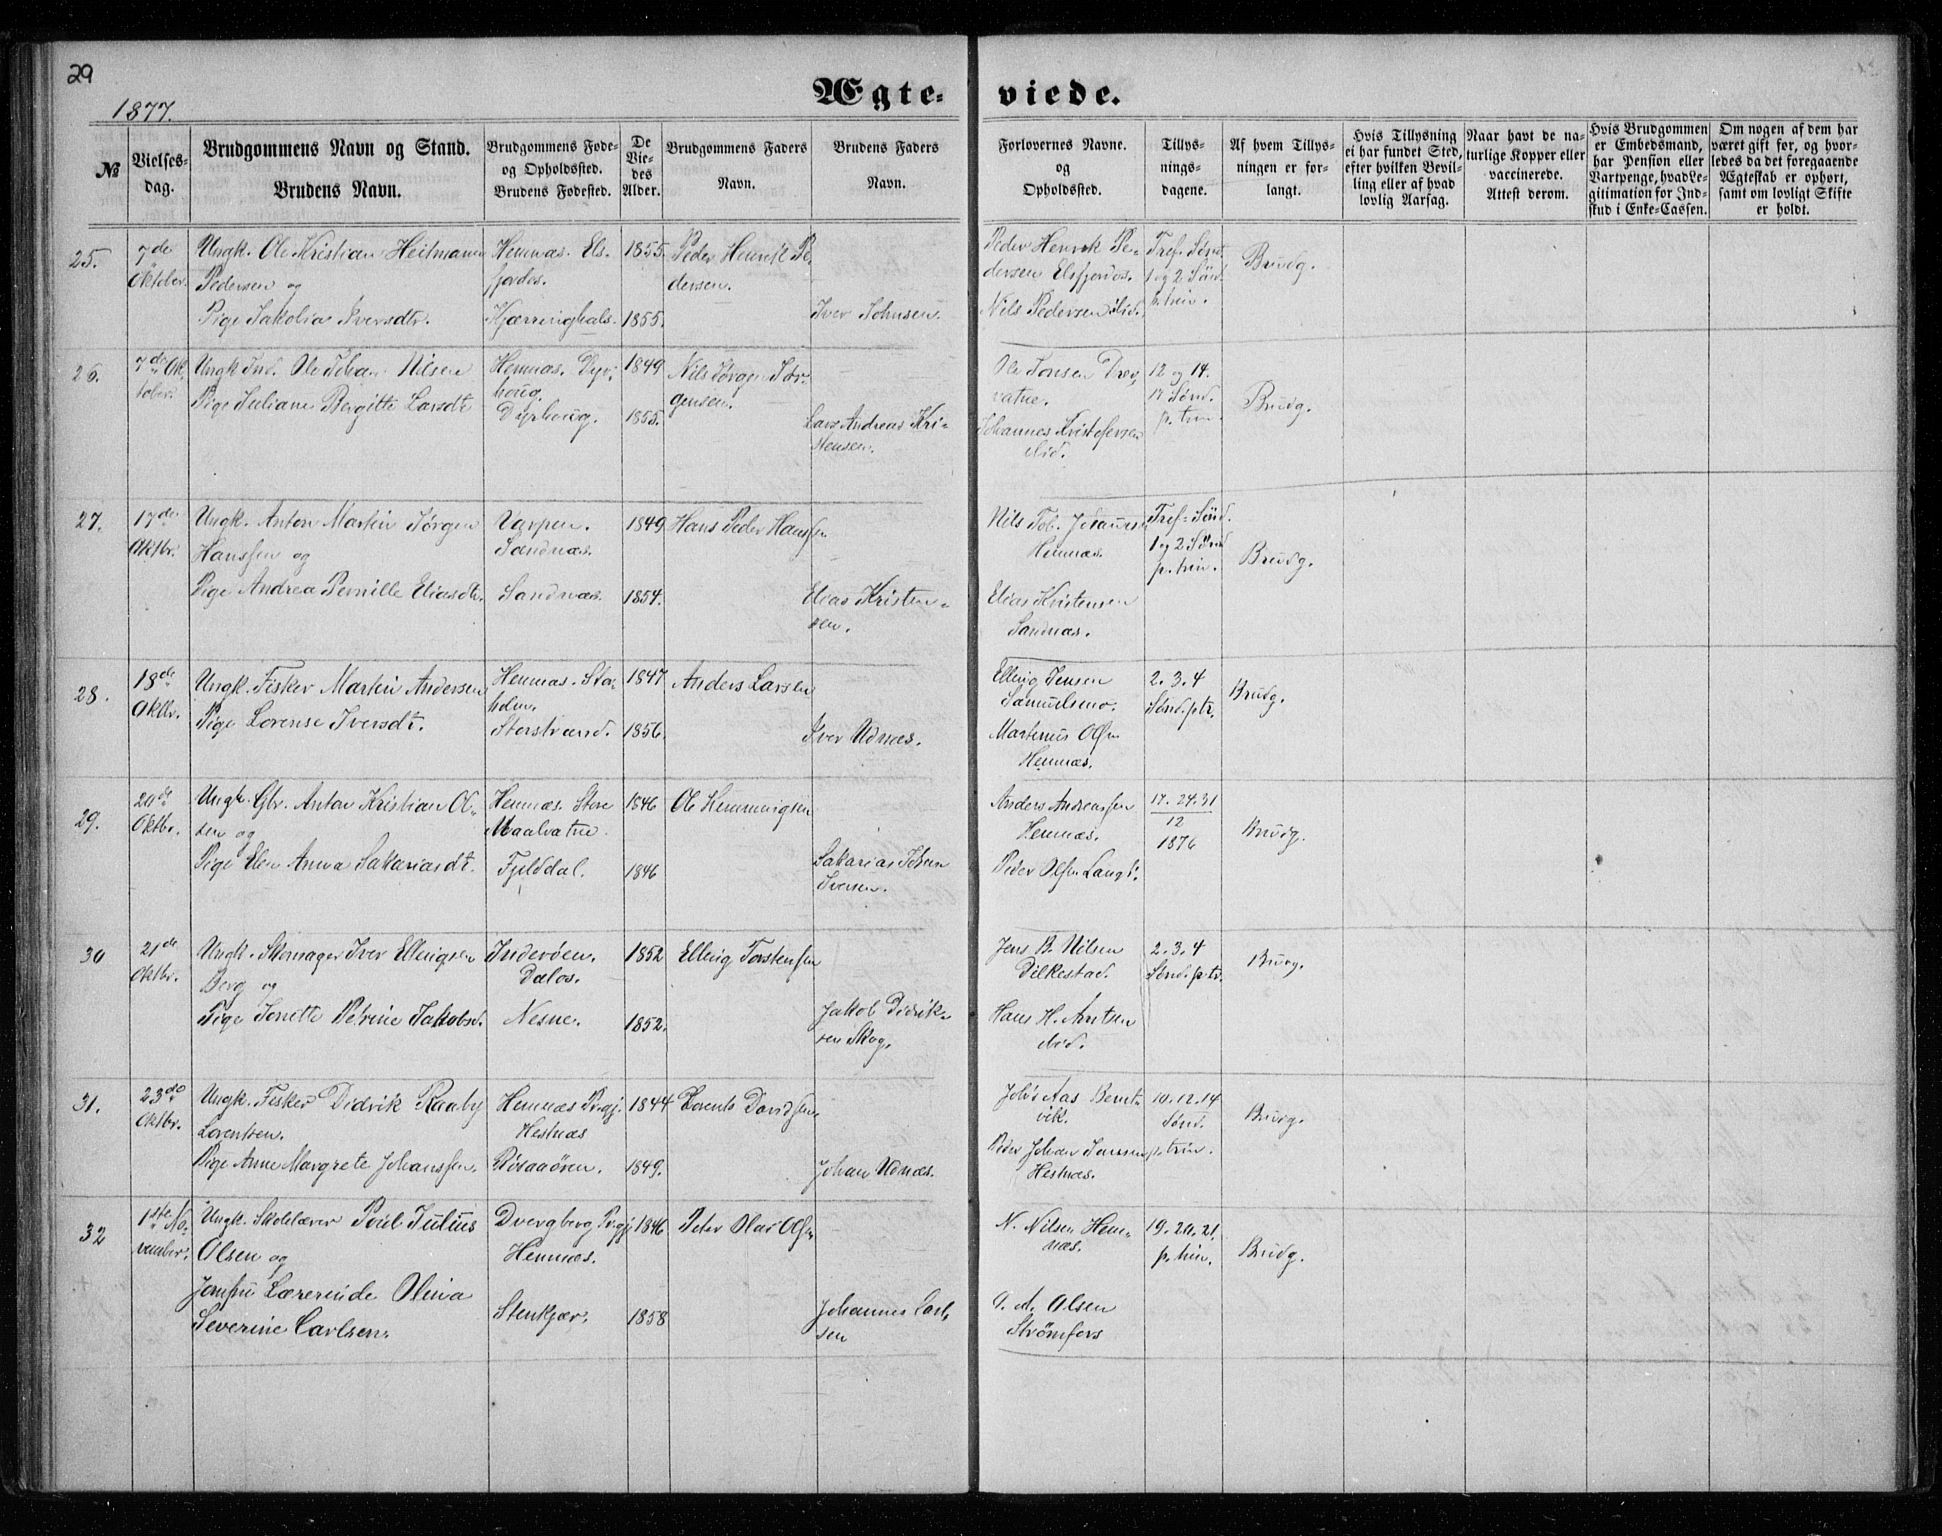 29
1877.
Ægte- viede.
№
Vielses-
dag.
Brudgommens Navn og Stand.
Brudens Navn.
Brudgommens Føde-
og Opholdssted.
Brudens Fødested.
De
Vie-
des
Alder.
Brudgommens Faders
Navn.
Brudens Faders
Navn.
Forlovernes Navne.
og
Opholdssted.
Tillys-
nings-
dagene.
Af hvem Tillys-
ningen er for-
langt.
Hvis Tillysning
ei har fundet Sted,
efter hvilken Bevil-
ling eller af hvad
lovlig Aarsag.
Naar havt de na-
turlige Kopper eller
vaccinerede.
Attest derom.
Hvis Brudgommen
er Embedsmand,
har Pension eller
Vartpenge, hvad Le-
gitimation for Ind-
skud i Enke-Cassen.
Om nogen af dem har
været gift før, og hvor-
ledes da det foregaaende
Ægteskab er ophørt,
samt om lovligt Skifte
er holdt.
25.
7de
Oktober.
Ungk. Ole Kristian Heitmann
Pedersen og
Pige Jakolia Iversdtr.
Hemnæs. Els-
fjorden.
Kjærringhals.
1855.
1855.
Peder Henrik Pe-
dersen.
Iver Johnsen.
Peder Henrik Pe-
dersen Elsfjorden.
Nils Pedersen ibid.
Tref. Sønd.
1 og 2 Sønd.
p. trin.
Brudg.
26.
7de Ok-
tober.
Ungk. Ind. Ole Johan Nilsen
Pige Juliane Bergitte Larsdt.
Hemnæs. Dyr-
houg.
Dyrhoug.
1849
1855.
Nils Jørgen Jør-
gensen.
Lars Andreas Kri-
stensen.
Ole Jonsen Drev-
vatne.
Johannes Kristofersen
ibid.
12 og 14.
17 Sønd.
p. trin.
Brudg.
27.
17de
Oktbr.
Ungk. Anton Martin Jørgen
Hanssen og
Pige Andrea Pernille Eliasdtr.
Varpen.
Sandnæs.
Sandnæs.
1849
1854.
Hans Peder Hanssen
Elias Kristen-
sen.
Nils Tob. Johansen
Hemnæs.
Elias Kristensen
Sandnæs.
Tref-Sønd.
1 og 2 Sønd
p. trin.
Brudg.
28.
18de
Oktbr.
Ungk. Fisker Martin Andersen
Pige Lorense Iversdt.
Hemnæs. Stor-
holm.
Storstrand.
1847
1856.
Anders Larsen
Iver Udnæs.
Elling Jensen
Martinus Olsen
Hemnæs.
2. 3. 4
Sønd. p. tr.
Brudg.
29.
20de
Oktbr.
Ungk. Gbr. Anton Kristian Ol-
sen og
Pige Elen Anna Sakariasdt.
Hemnæs. Store
Maalvatne.
Fjelddal.
1846
1846
Ole Hemmingsen
Sakarias Johan
Iversen.
Anders Andreassen
Hemnæs.
Peder Olsen
17. 24. 31
12
1876
Brudg.
30
21de
Oktbr.
Ungk. Skomager Iver Ellingsen
Berg og
Pige Jonette Petrine Jakobsd.
Inderøen.
Nesne.
1852
1852.
Elling Torstensen
Jakob Didrik-
sen Skog.
Jens B. Nilsen
Dilkestad.
Hans H. Arntsen
ibid.
2. 3. 4
Sønd. p. tr.
Brudg.
31.
23de
Oktbr.
Ungk. Fisker Didrik Raaby
Lorentsen.
Pige Anne Margrete Johanssen.
Hemnæs Prgj.
Hestnæs
Røsaaøren.
1844
1849.
Lorents Davidsen.
Johan Udnæs.
Johs Aas Bernt-
vik.
Peder Johan Jonssen
Hestnæs.
10. 12. 14
Sønd.
p. trin.
Brudg.
32
1ste No-
vember.
Ungk. Skolelærer Poul Julius
Olsen og
Jomfru Lærerinde Olina
Severine Carlsen.
Dvergberg Prgj
Hemnæs.
Stenkjær.
1846
1858
Peter Olai Olsen
Johannes Carl-
sen
N. Nilsen Hem-
næs.
Olsen
Strømfors
19. 20. 21.
p. trin.
Brudg.